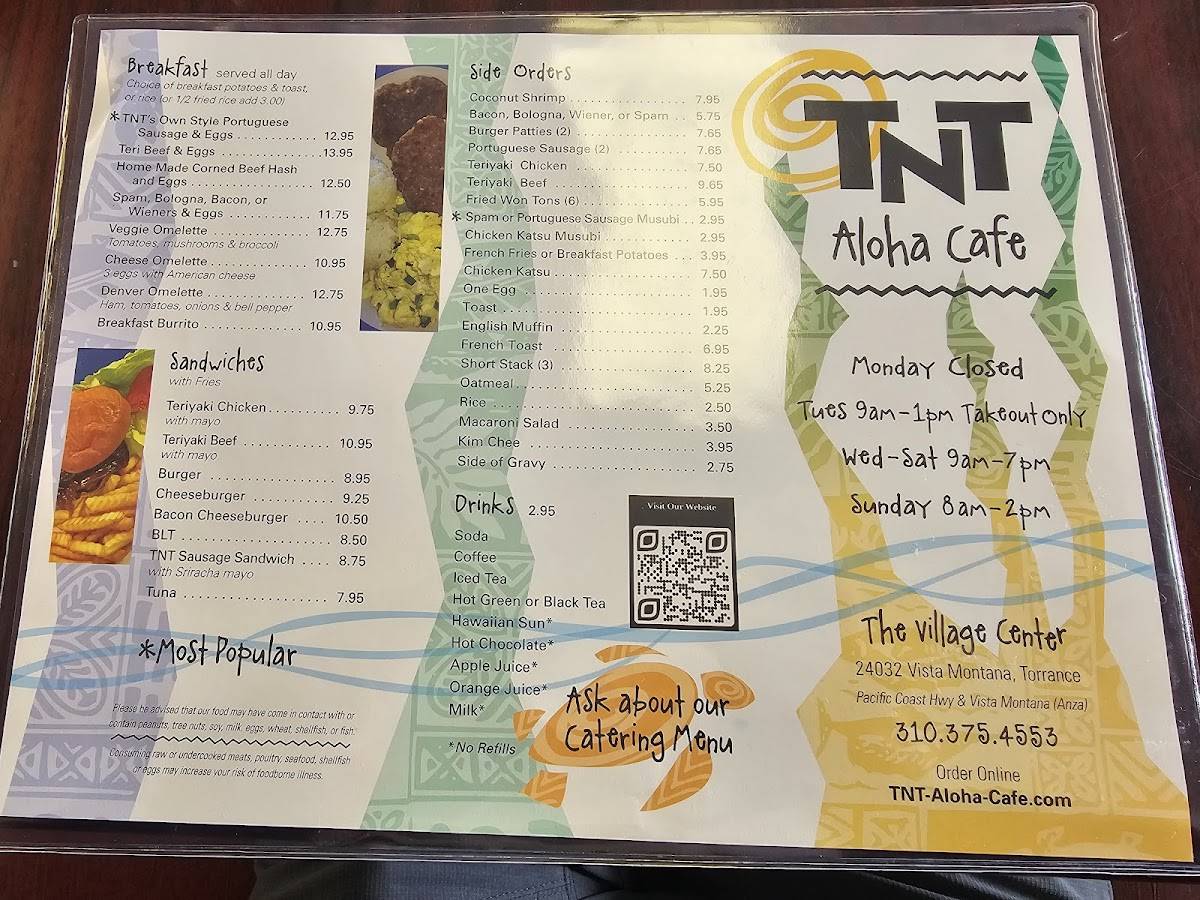 Breakfast served all day
Choice of breakfast potatoes & toast,
or rice (or 1/2 fried rice add 3.00)
*TNT's Own Style Portuguese
Sausage & Eggs .............. 12.95
Teri Beef & Eggs ...............13.95
Home Made Corned Beef Hash
and Eggs ................... 12.50
Spam, Bologna, Bacon, or
Wieners & Eggs ............ 11.75
Veggie Omelette .............. 12.75
Tomatoes, mushrooms & broccoli
Cheese Omelette .............. 10.95
3 eggs with American cheese
Denver Omelette .............. 12.75
Ham, tomatoes, onions & bell pepper
Breakfast Burrito .............. 10.95
Sandwiches
with Fries
Teriyaki Chicken.......... 9.75
with mayo
Teriyaki Beef ............. 10.95
with mayo
Burger .................. 8.95
Cheeseburger ............ 9.25
Bacon Cheeseburger .... 10.50
BLT ..................... 8.50
TNT Sausage Sandwich .... 8.75
with Sriracha mayo
Tuna .................... 7.95
*Most Popular
Please be advised that our food may have come in contact with or
contain peanuts, tree nuts, soy, milk, eggs, wheat, shellfish, or fish.
Consuming raw or undercooked meats, poultry, seafood, shellfish
or eggs may increase your risk of foodborne illness.
Side Orders
Coconut Shrimp ............... 7.95
Bacon, Bologna, Wiener, or Spam .. 5.75
Burger Patties (2) ............... 7.65
Portuguese Sausage (2) .......... 7.65
Teriyaki Chicken ............... 7.50
Teriyaki Beef .................. 9.65
Fried Won Tons (6) .............. 5.95
*Spam or Portuguese Sausage Musubi .. 2.95
Chicken Katsu Musubi ........... 2.95
French Fries or Breakfast Potatoes ... 3.95
Chicken Katsu .................. 7.50
One Egg ...................... 1.95
Toast ......................... 1.95
English Muffin ................. 2.25
French Toast .................. 6.95
Short Stack (3) ................. 8.25
Oatmeal ....................... 5.25
Rice .......................... 2.50
Macaroni Salad ................ 3.50
Kim Chee ..................... 3.95
Side of Gravy .................. 2.75
Drinks 2.95
Soda
Coffee
Iced Tea
Hot Green or Black Tea
Hawaiian Sun*
Hot Chocolate*
Apple Juice*
Orange Juice*
Milk*
*No Refills
Visit Our Website
Ask about our
Catering Menu
TNT
Aloha Cafe
Monday Closed
Tues 9am-1pm Takeout Only
Wed-Sat 9am-7pm
Sunday 8am-2pm
The Village Center
24032 Vista Montana, Torrance
Pacific Coast Hwy & Vista Montana (Anza)
310.375.4553
Order Online
TNT-Aloha-Cafe.com